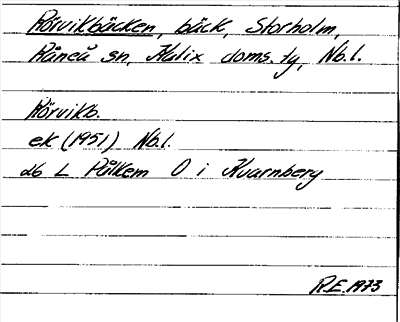 Rörvikbäcken, bäck, Storholm,
Råneå sn, Kalix doms. tg, Nb.l.
Rörvikb.
ek (1951) Nb.l.
db L Pålkem O i Kvarnberg
R.E. 1973